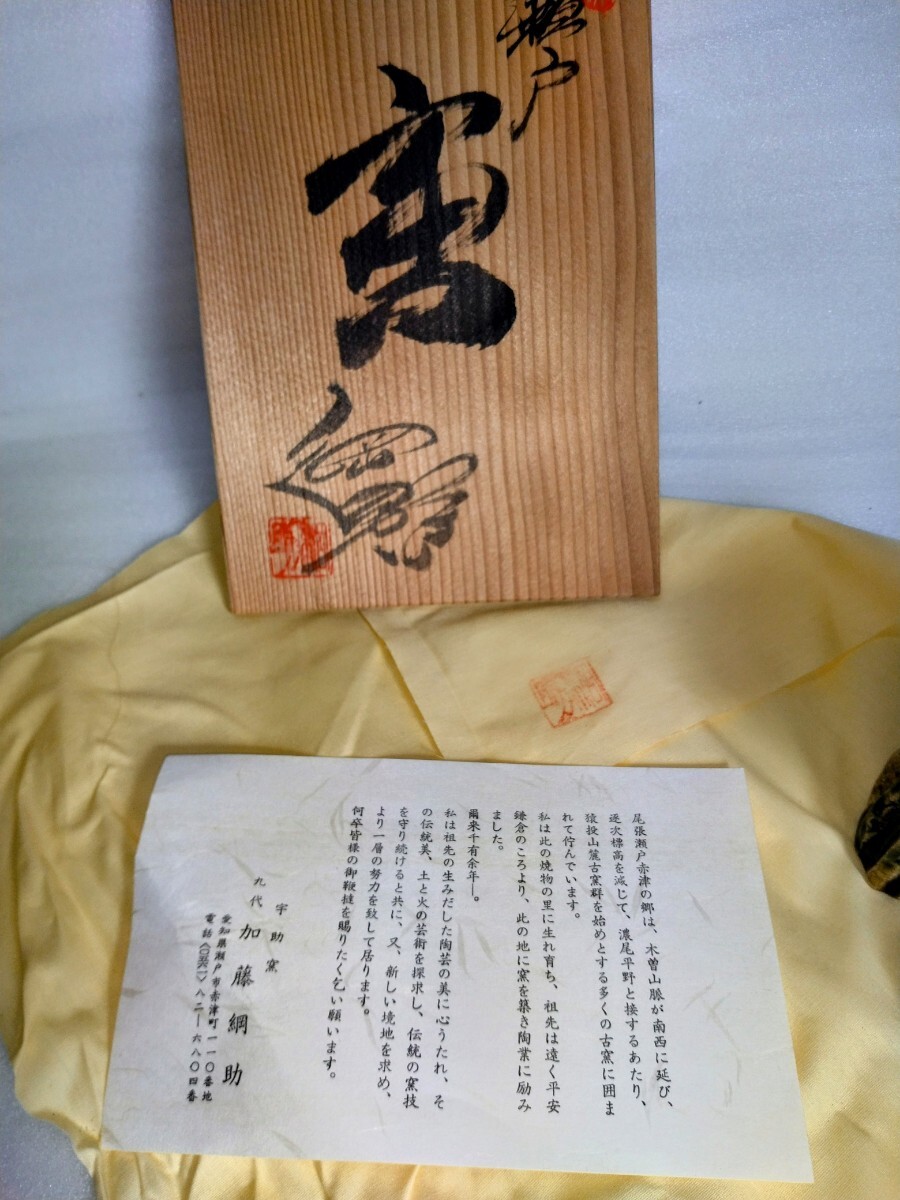 瀬戸
尾張瀬戸赤津の郷は、木曽山脈が南西に延び、
逐次標高を減じて、濃尾平野と接するあたり、
猿投山麓古窯群を始めとする多くの古窯に囲ま
れて佇んでいます。
私は此の焼物の里に生れ育ち、祖先は遠く平安
鎌倉のころより、此の地に窯を築き陶業に励み
ました。
爾来千有余年―。
私は祖先の生みだした陶芸の美に心うたれ、そ
の伝統美、土と火の芸術を探求し、伝統の窯技
を守り続けると共に、又、新しい境地を求め、
より一層の努力を致して居ります。
何卒皆様の御鞭撻を賜りたく乞い願います。
宇助窯
九代 加藤綱助
愛知県瀬戸市赤津町一一〇番地
電話〈〇五六一〉八二―六八〇四番